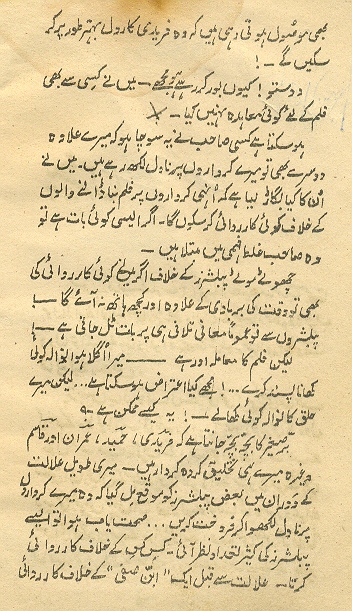 بھی موصول ہوتی رہی ہیں کہ وہ فریدی کا رول بہتر طور پر کر
سکیں گے۔!
دوستو! کیوں بور کر رہے ہو مجھے۔ میں نے کسی سے بھی
فلم کے لئے کوئی معاہدہ نہیں کیا۔
ہو سکتا ہے کسی صاحب نے یہ سوچا ہو کہ میرے علاوہ
دوسرے بھی تو میرے کرداروں پر ناول لکھ رہے ہیں۔ میں نے
اُن کا کیا بگاڑ لیا ہے کہ انہی کرداروں پر فلم بنا ڈالنے والوں
کے خلاف کوئی کارروائی کر سکوں گا۔ اگر ایسی کوئی بات ہے تو
وہ صاحب غلط فہمی میں مبتلا ہیں۔
چھوٹے موٹے پبلشرز کے خلاف اگر میں نے کوئی کارروائی کی
بھی تو وقت کی بربادی کے علاوہ اور کچھ ہاتھ نہ آئے گا۔!
پبلشروں سے تو عموماً معافی تلافی ہی پر بات ٹل جاتی ہے۔!
لیکن فلم کا معاملہ اور ہے ــــــ میرا اُگلا ہوا نوالہ کوئی
کھانا پسند کرے...! مجھے کیا اعتراض ہو سکتا ہے... لیکن میرے
حلق کا نوالہ کوئی کھالے۔! یہ کیسے ممکن ہے۔؟
برّصغیر کا بچہ بچہ جانتا ہے کہ فریدی، حمید، عمران اور قاسم
وغیرہ میرے ہی تخلیق کردہ کردار ہیں۔ میری طویل علالت
کے دوران میں بعض پبلشرز کو موقع مل گیا کہ وہ میرے کرداروں
پر ناول لکھوا کر فروخت کریں... صحت یاب ہوا تو ایسے
پبلشرز کی کثیر تعداد نظر آئی۔ کس کس کے خلاف کارروائی
کرتا۔ علالت سے قبل ایک "ابّن صفی" کے خلاف کارروائی